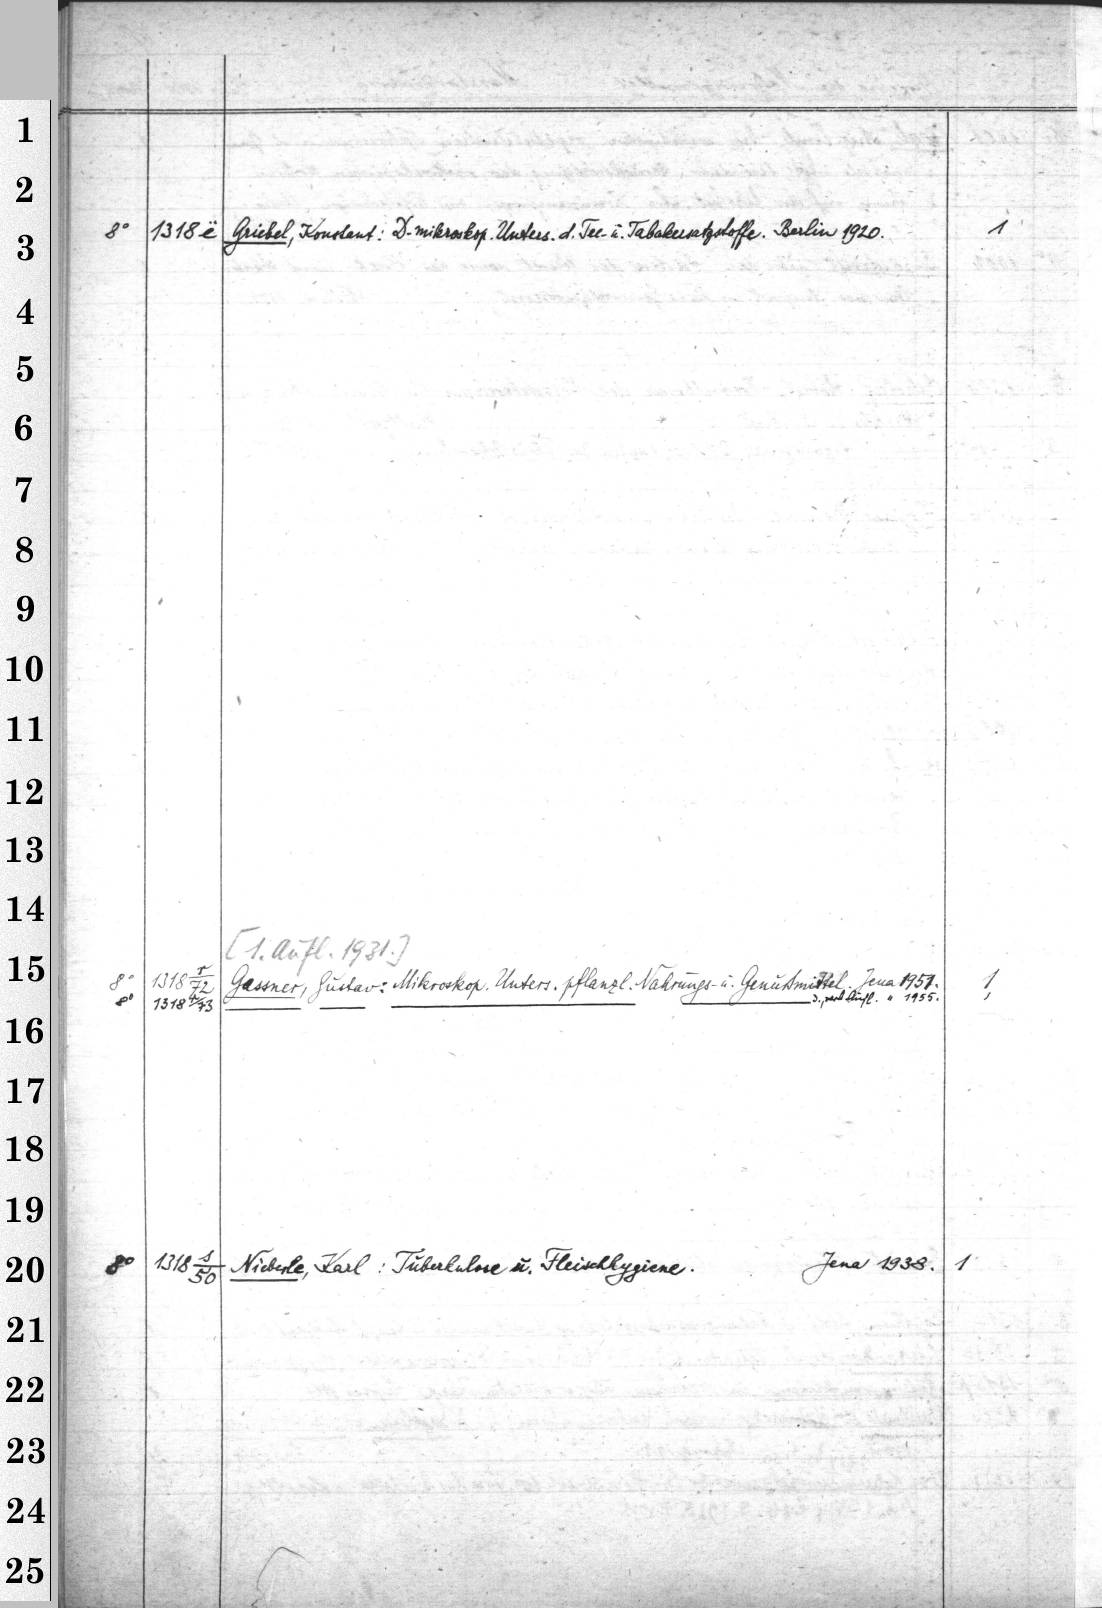 1
2
8° 1318 ë Griebel, Konstant: D. mikroskop. Unters. d. Tee- u. Tabakersatzstoffe. Berlin 1920. 1
3
4
5
6
7
8
9
10
11
12
13
14
[1. Aufl. 1931.]
15
8° 1318 r/72 Gassner, Gustav: Mikroskop. Unters. pflanzl. Nahrungs- u. Genußmittel. Jena 1951. 1
8° 1318 r/73 Aufl. " 1955. 1
16
17
18
19
20
8° 1318 s/50 Nieberle, Karl: Tuberkulose u. Fleischhygiene. Jena 1938. 1
21
22
23
24
25